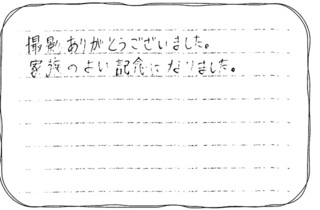 撮影ありがとうございました。
家族のよい記念になりました。